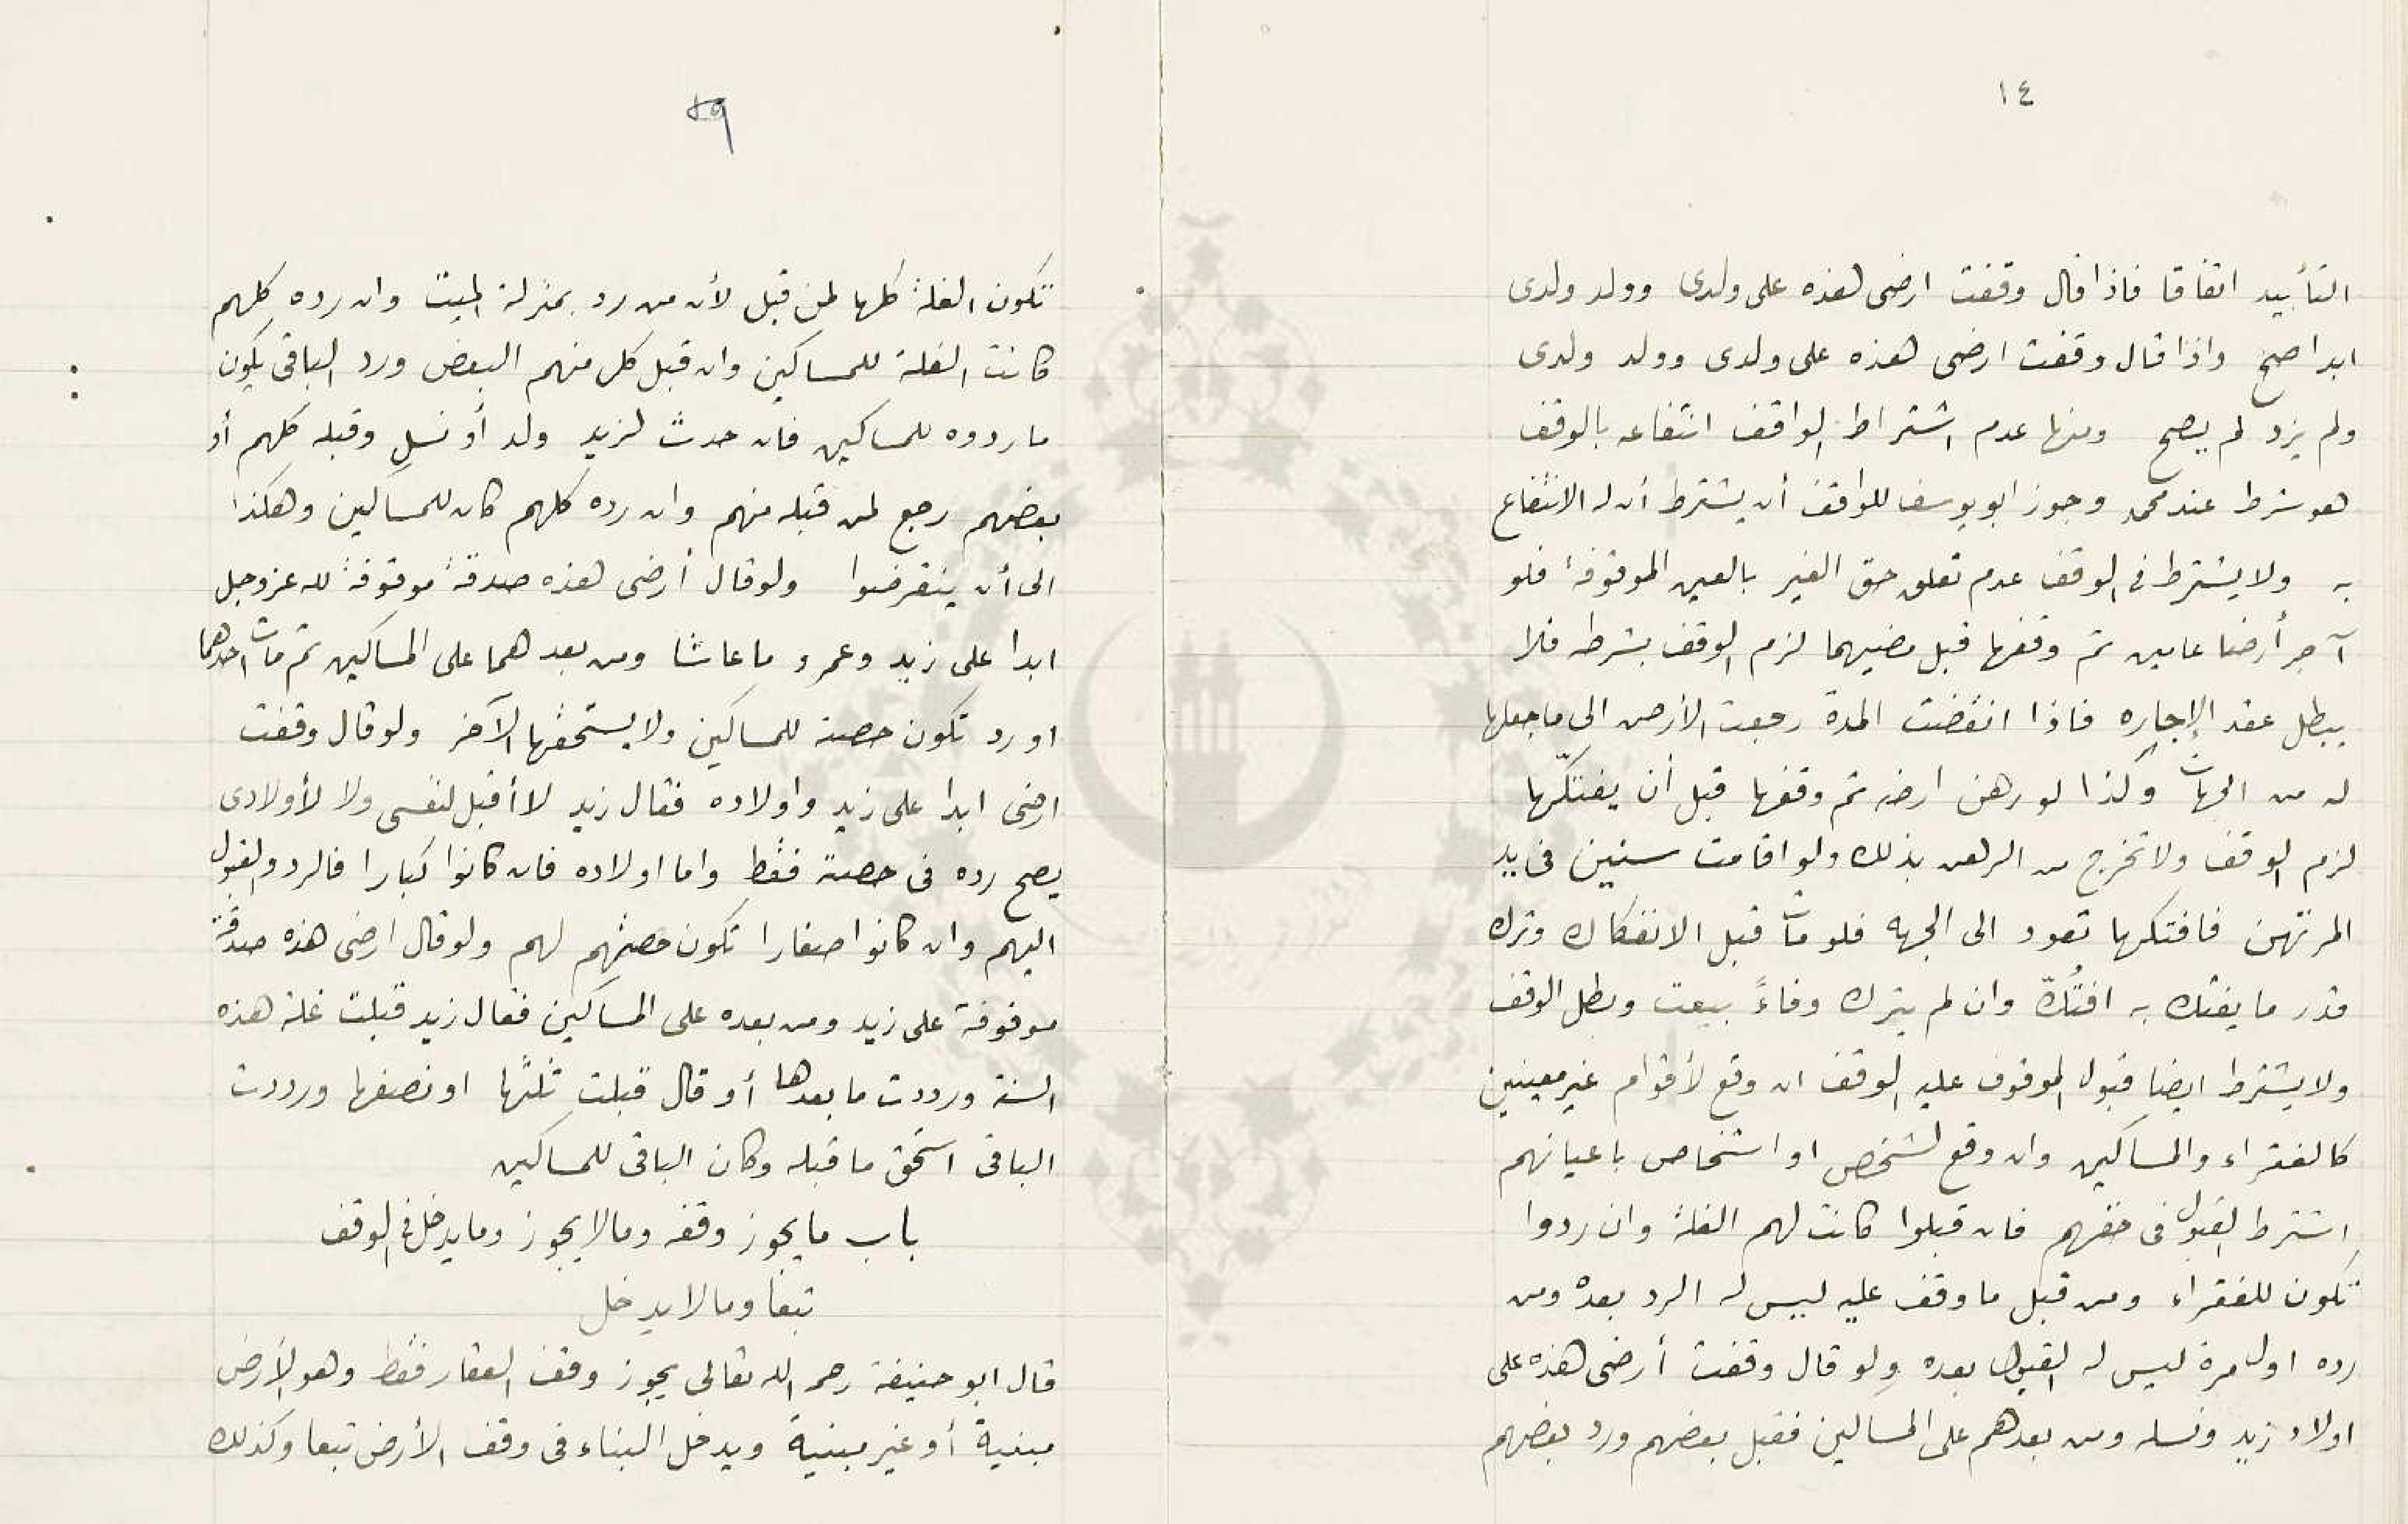 ١٤
التأبيد اتفاقا فاذا قال وقفت ارضى هذه على ولدى وولد ولدى
ابدا صح واذا قال وقفت ارضى هذه على ولدى وولد ولدى
ولم يزد لم يصح ومنها عدم اشتراط الواقف انتفاعه بالوقف
هو شرط عند محمد وجوز ابو يوسف للواقف أن يشترط أن له الانتفاع
به ولا يشترط فى الوقف عدم تعلق حق الغير بالعين الموقوفة فلو
آجر أرضا عامين ثم وقفها قبل مضيهما لزم الوقف بشرطه فلا
يبطل عقد الإجاره فاذا انقضت المدة رجعت الأرض الى ما جعلها
له من الجهات وكذا لو رهن ارضه ثم وقفها قبل أن يفتكّها
لزم الوقف ولا تخرج من الرهن بذلك ولو اقامت سنين فى يد
المرتهن فافتكها تعود الى الجهه فلو مات قبل الانفكاك وترك
قدر ما يفتك به افتُكّ وان لم يترك وفاءً بيعت وبطل الوقف
ولا يشترط ايضا قبول الموقوف عليه الوقف ان وقع لأقوام غير معينين
كالفقراء والمساكين وان وقع لشخص او اشخاص باعيانهم
اشترط القبول فى حقهم فان قبلوا كانت لهم الغلة وان ردوا
تكون للفقراء ومن قبل ما وقف عليه ليس له الرد بعده ومن
رده اول مرة ليس له القبول بعده ولو قال وقفت أرضى هذه على
اولاد زيد ونسله ومن بعدهم على المساكين فقبل بعضهم ورد بعضهم
تكون الغلة كلها لمن قبل لأن من رد بمنزلة الميت وان رده كلهم
كانت الغلة للمساكين وان قبل كل منهم البعض ورد الباقى يكون
ما ردوه للمساكين فان حدث لزيد ولد أو نسل وقبله كلهم أو
بعضهم رجع لمن قبله منهم وان رده كلهم كان للمساكين وهكذا
الى أن ينقرضوا ولو قال أرضى هذه صدقة موقوفة لله عز وجل
ابدا على زيد وعمرو ما عاشا ومن بعدهما على المساكين ثم مات احدهما
او رد تكون حصته للمساكين ولا يستحقها الآخر ولو قال وقفت
ارضى ابدا على زيد واولاده فقال زيد لا أقبل لنفسى ولا لأولادى
يصح رده فى حصته فقط واما اولاده فان كانوا كبارا فالرد والقبول
اليهم وان كانوا صغارا تكون حصتهم لهم ولو قال ارضى هذه صدقة
موقوفة على زيد ومن بعده على المساكين فقال زيد قبلت غلة هذه
السنة ورددت ما بعدها أو قال قبلت ثلثها او نصفها ورددت
الباقى استحق ما قبله وكان الباقى للمساكين
باب ما يجوز وقفه وما لا يجوز وما يدخل فى الوقف
تبعا وما لا يدخل
قال ابو حنيفة رحمه الله تعالى يجوز وقف العقار فقط وهو الأرض
مبنية أو غير مبنية ويدخل البناء فى وقف الأرض تبعا وكذلك